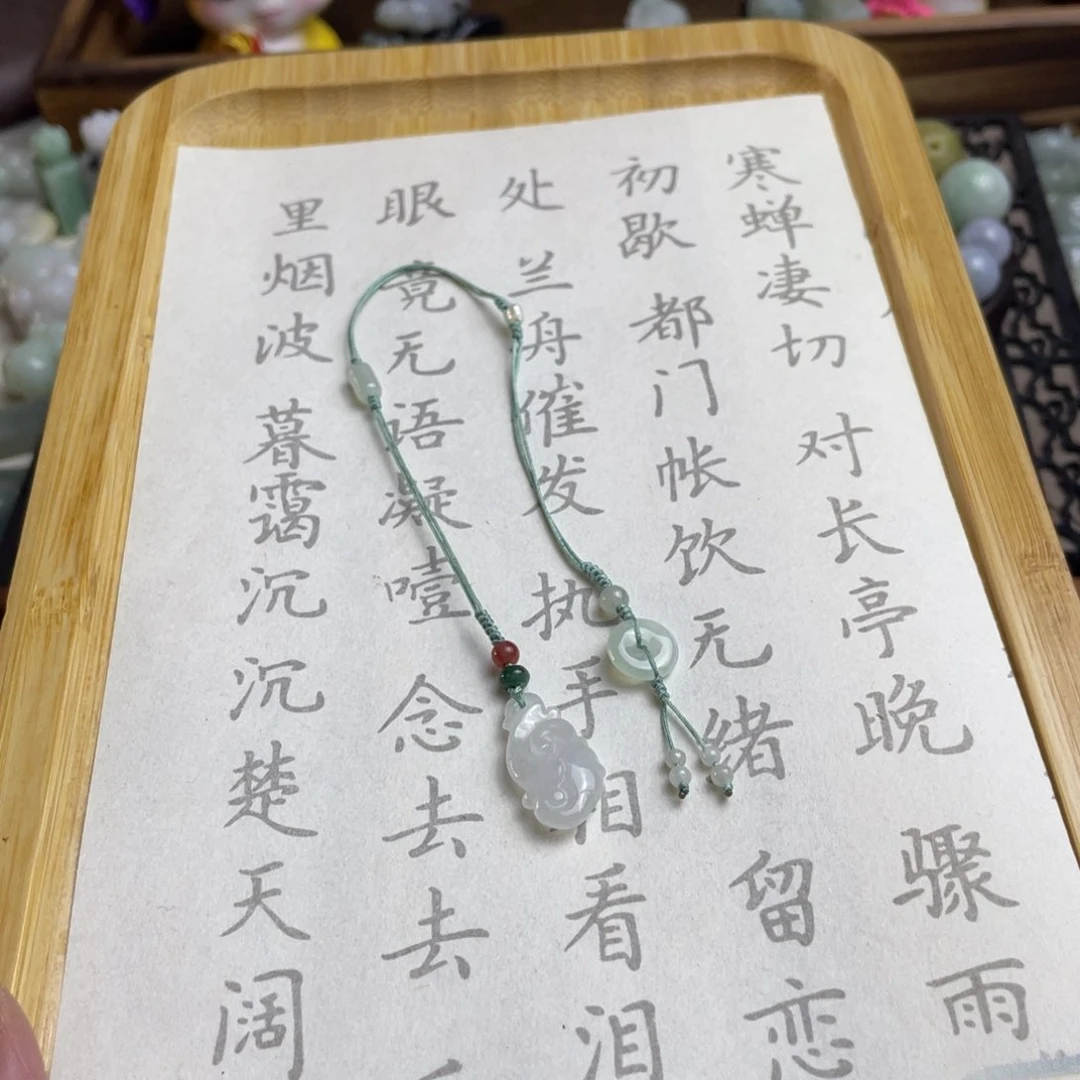 寒蝉凄切 对长亭晚 骤雨
初歇 都门帐饮无绪 留恋
处 兰舟催发 执手相看泪
眼 竟无语凝噎 念去去
里烟波 暮霭沉沉楚天阔